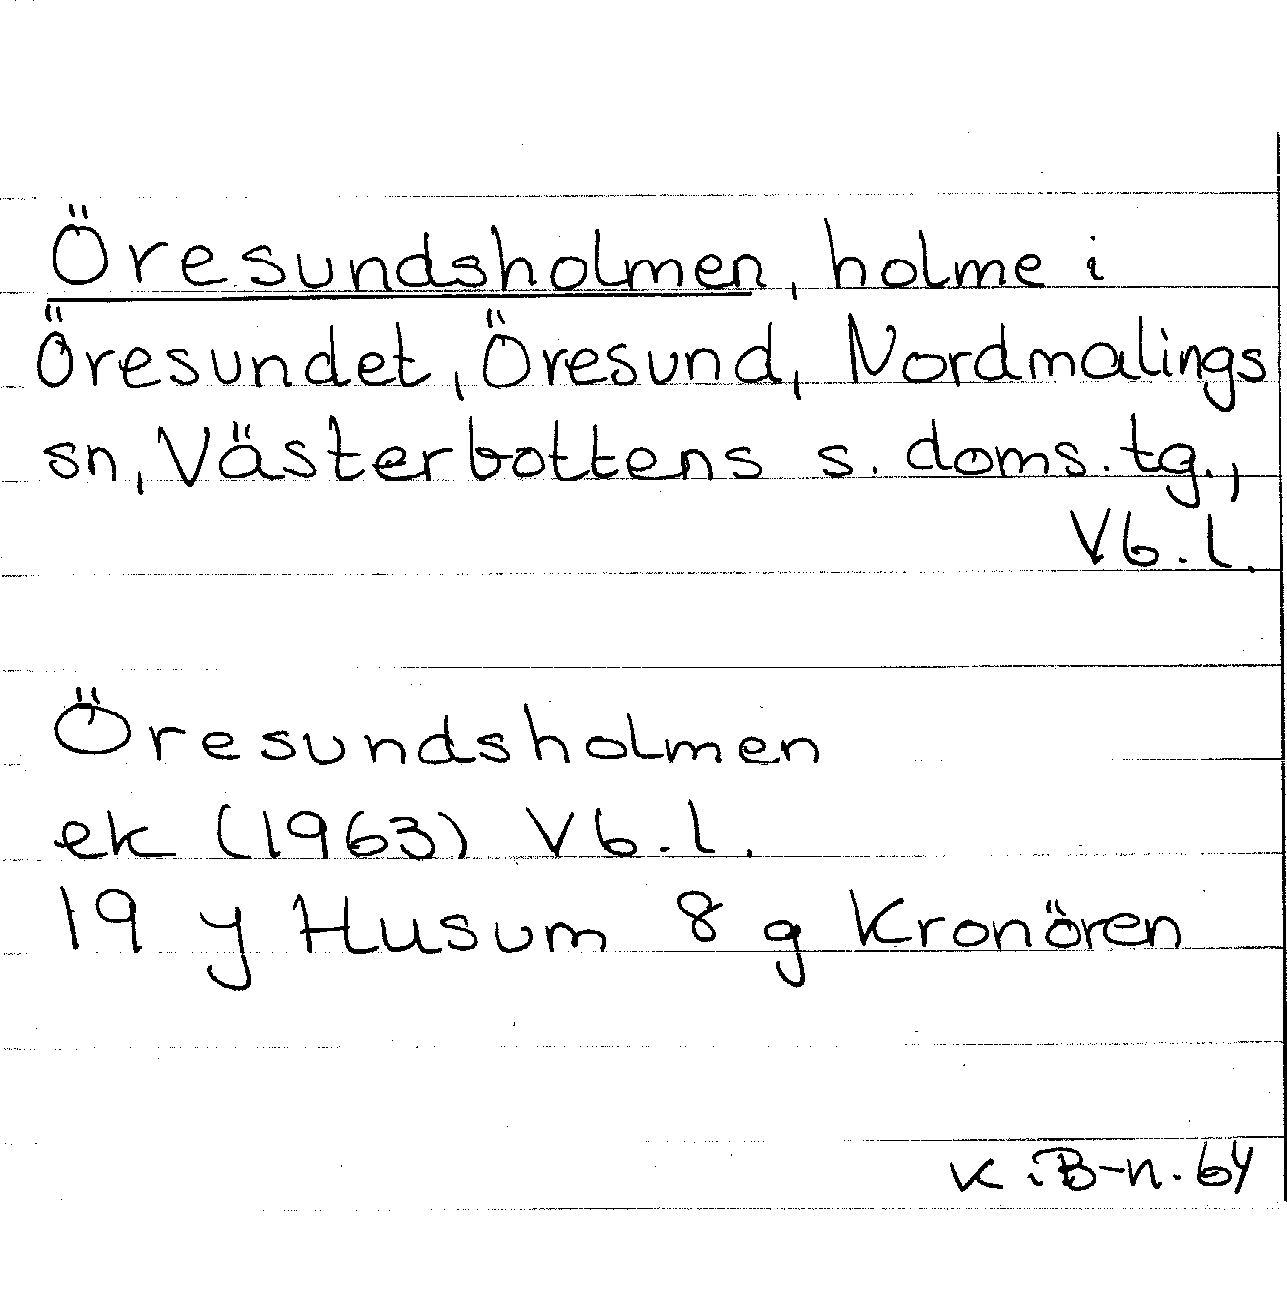 Öresundsholmen, holme i
Öresundet, Öresund, Nordmalings
sn, Västerbottens s. doms. tg.,
Vb. l.
Öresundsholmen
ek (1963) Vb. l.
19 y Husum 8 g Kronören
K. B-n. 64